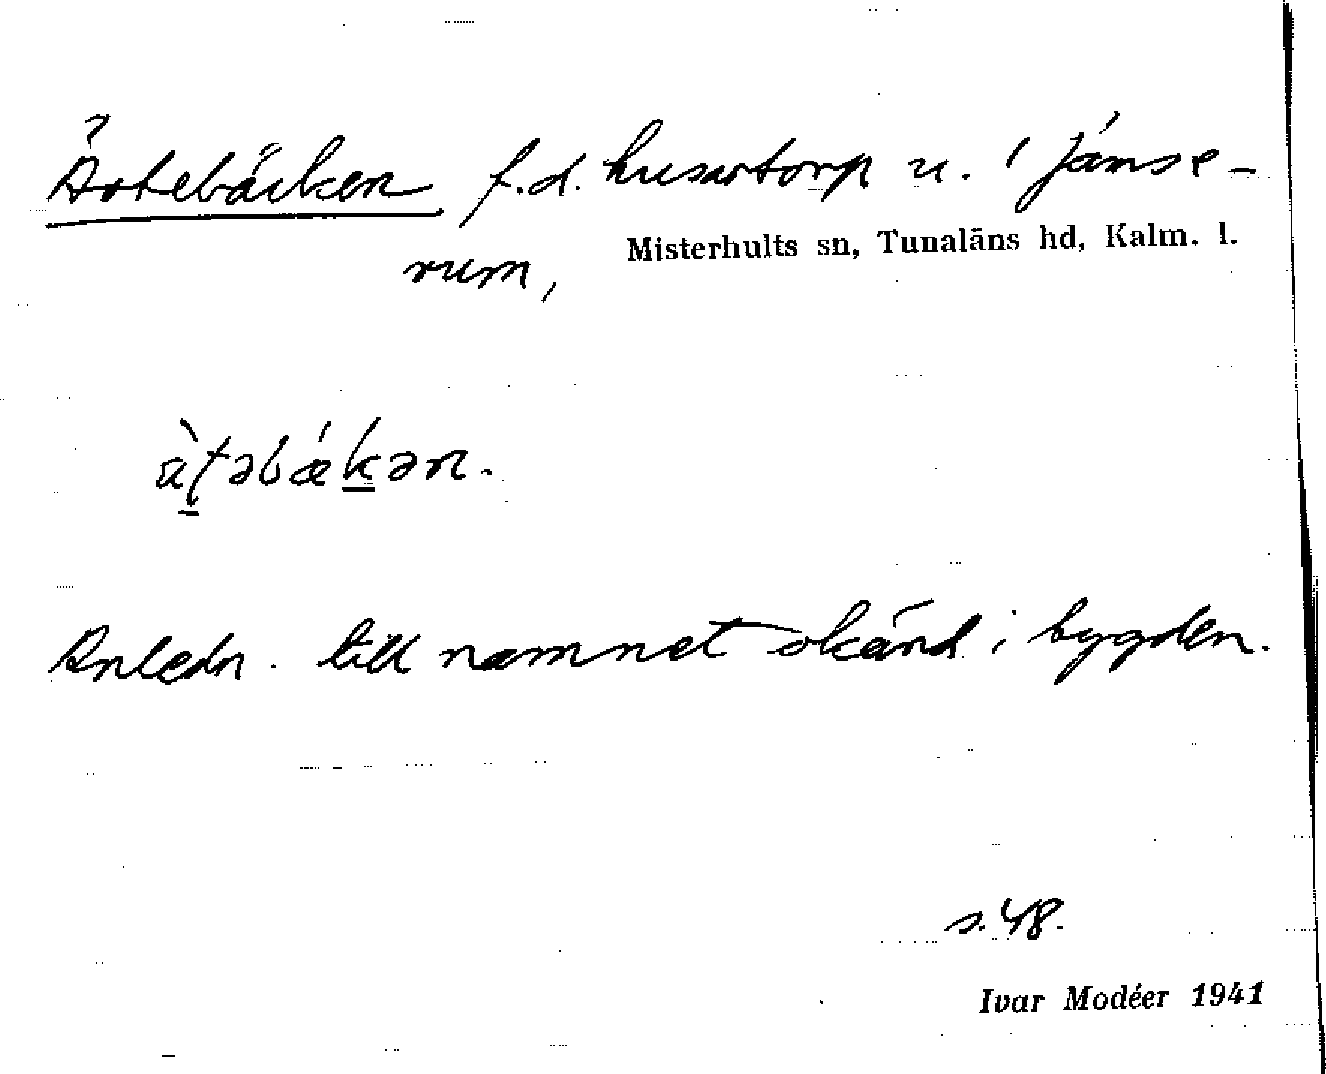 Ärtebäcken f.d. husartorp u. 1 Jämse-
rum, Misterhults sn, Tunaläns hd, Kalm. l.
Anledn. till namnet okänd i bygden.
s. 48.
Ivar Modéer 1941